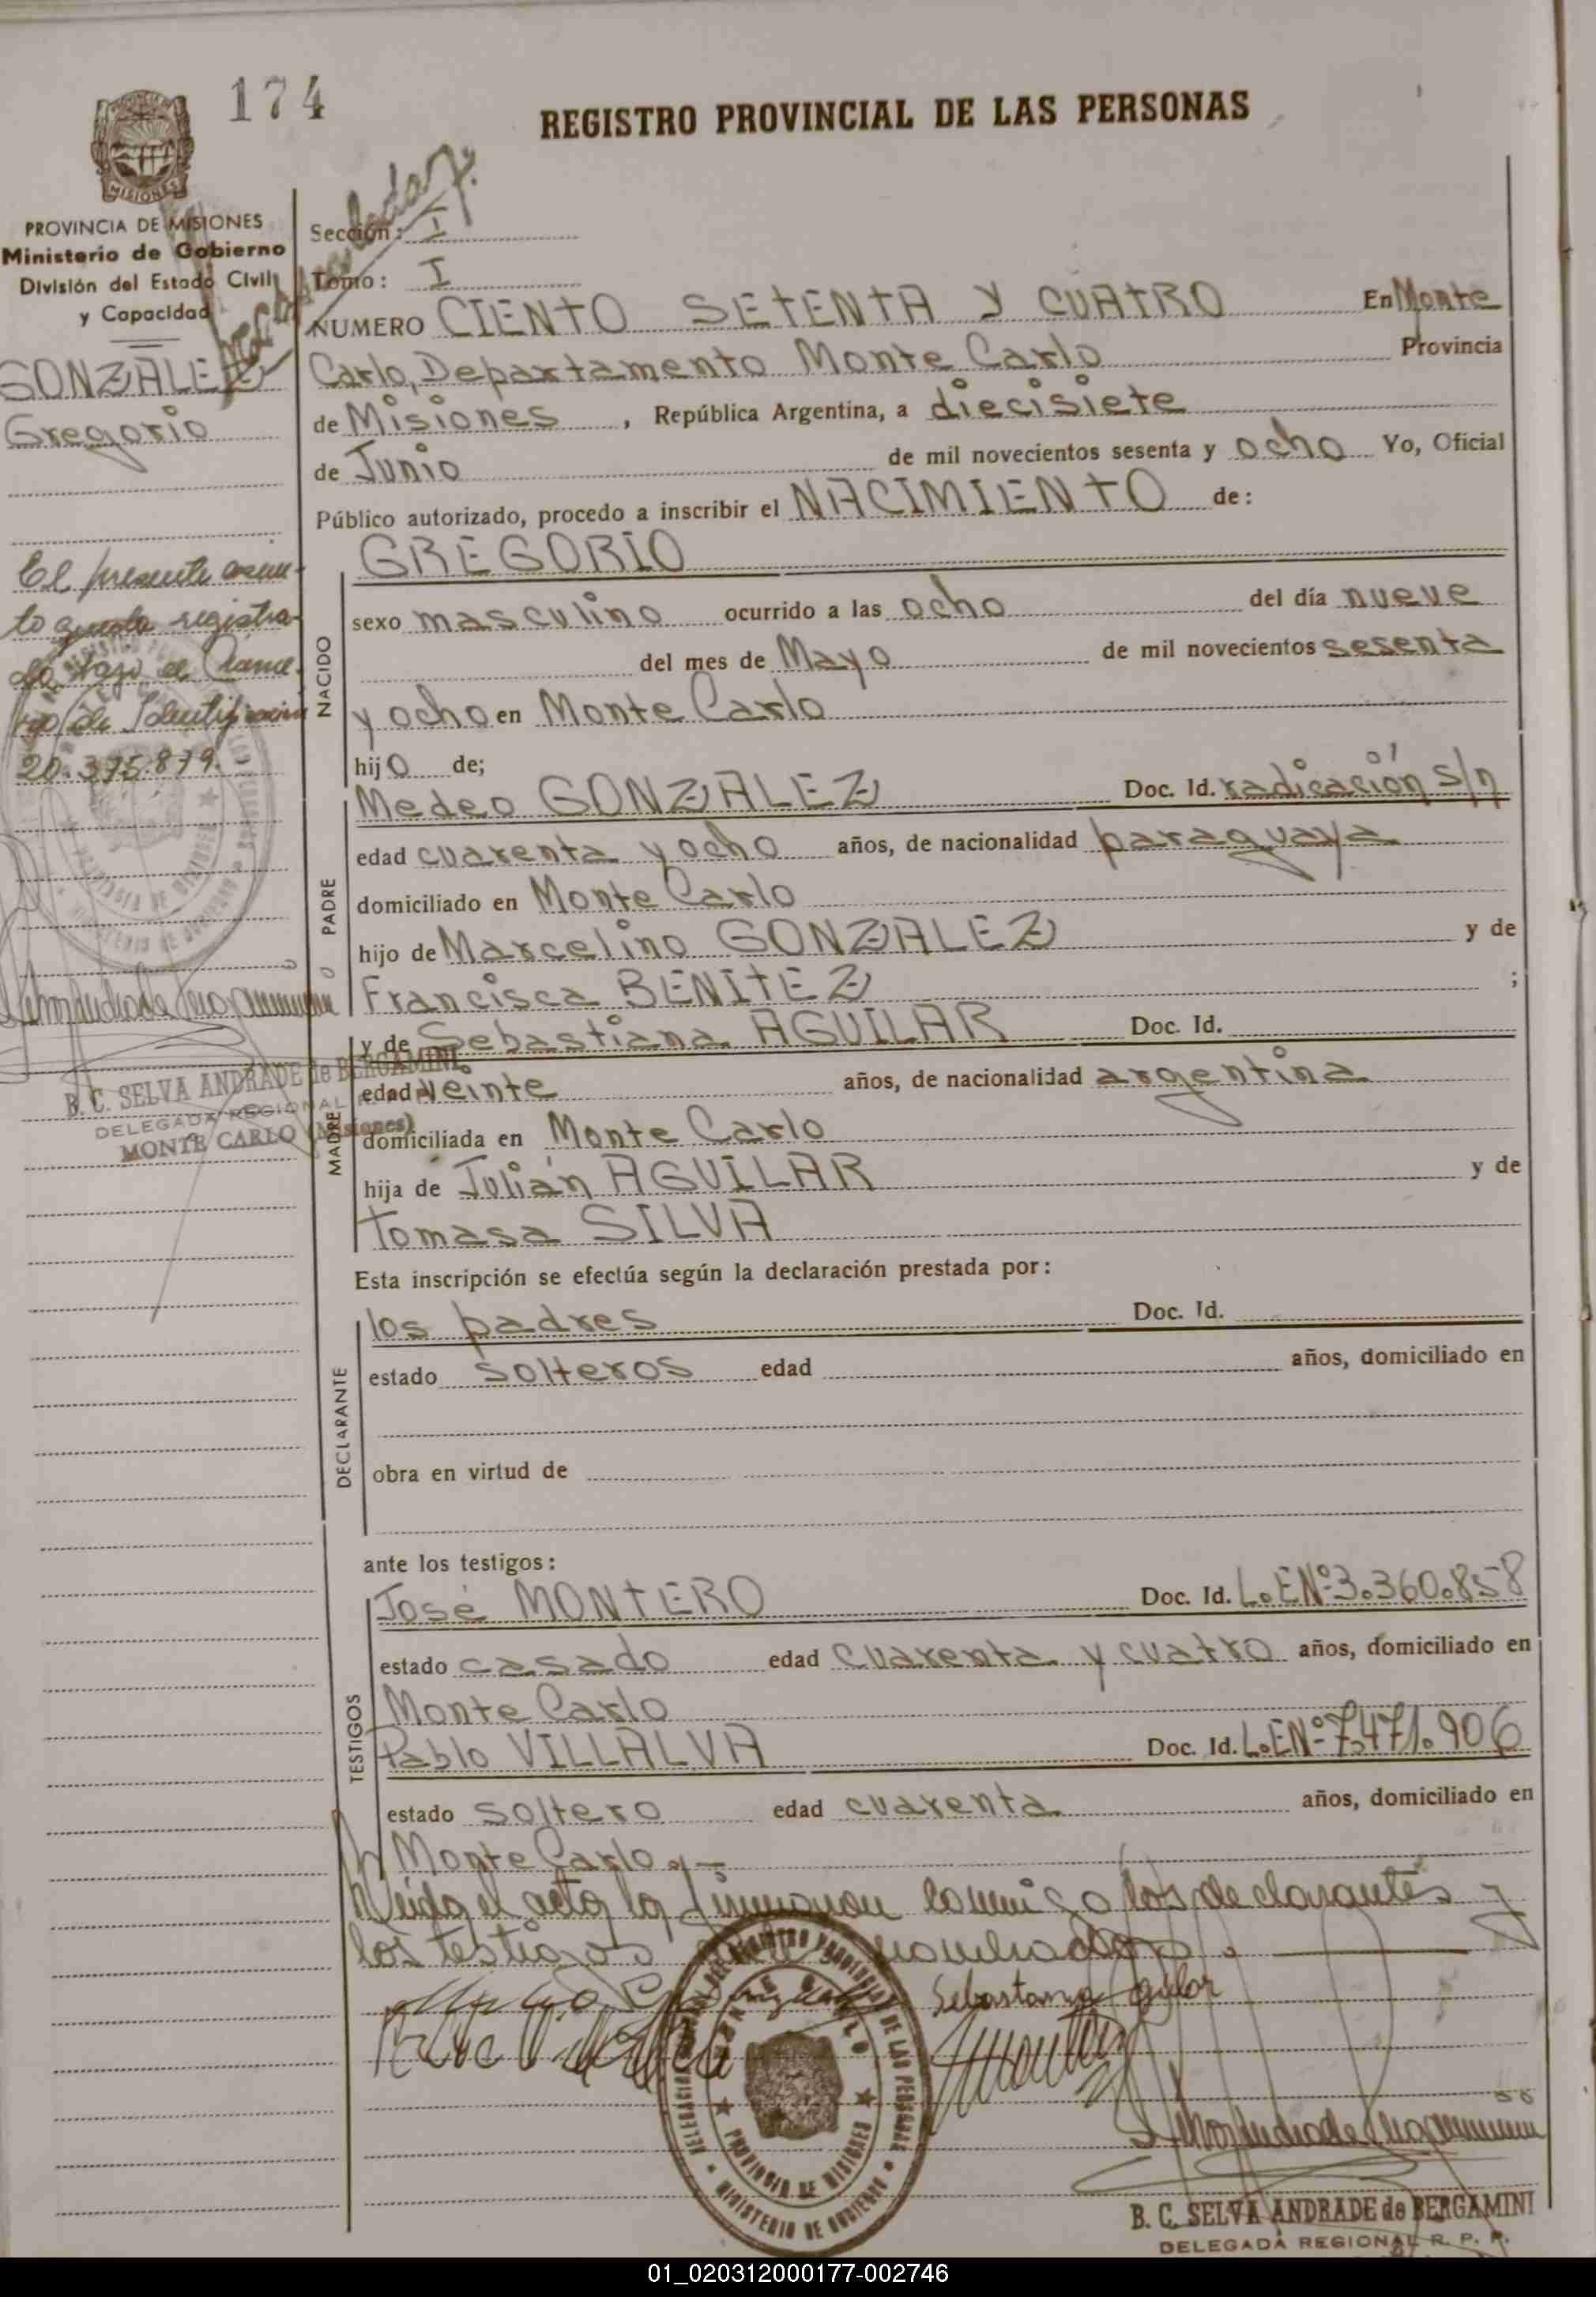 174
REGISTRO PROVINCIAL DE LAS PERSONAS
MISIONES
PROVINCIA DE MISIONES
Ministerio de Gobierno
División del Estado Civil
y Capacidad
GONZALEZ
Gregorio
El presente asien-
to queda registra-
do bajo el
de Identificación
20.375.879.
B. C. SELVA ANDRADE de BERGAMINI
DELEGADA REGIONAL
MONTE CARLO (Misiones)
Sección: I
Tomo: I
NUMERO CIENTO SETENTA Y CUATRO En Monte
Carlo, Departamento Monte Carlo Provincia
de Misiones, República Argentina, a diecisiete
de Junio de mil novecientos sesenta y ocho Yo, Oficial
Público autorizado, procedo a inscribir el NACIMIENTO de:
GREGORIO
NACIDO
sexo masculino ocurrido a las ocho del día nueve
del mes de Mayo de mil novecientos sesenta
y ocho en Monte Carlo
hijo de;
PADRE
Medeo GONZALEZ Doc. Id. radicación s/n
edad cuarenta y ocho años, de nacionalidad paraguaya
domiciliado en Monte Carlo
hijo de Marcelino GONZALEZ y de
Francisca BENITEZ ;
MADRE
y de Sebastiana AGUILAR Doc. Id.
edad veinte años, de nacionalidad argentina
domiciliada en Monte Carlo
hija de Julián AGUILAR y de
Tomasa SILVA
Esta inscripción se efectúa según la declaración prestada por:
DECLARANTE
los padres Doc. Id.
estado solteros edad años, domiciliado en
obra en virtud de
ante los testigos:
TESTIGOS
José MONTERO Doc. Id. L.E.Nº 3.360.858
estado casado edad cuarenta y cuatro años, domiciliado en
Monte Carlo
Pablo VILLALVA Doc. Id. L.E.Nº 7.471.906
estado soltero edad cuarenta años, domiciliado en
Monte Carlo.-
Leída el acta la firmaron conmigo los declarantes y
los testigos nombrados.
Sebastana
PROVINCIA DE MISIONES
MINISTERIO DE GOBIERNO
B. C. SELVA ANDRADE de BERGAMINI
DELEGADA REGIONAL R. P. P.
01_020312000177-002746